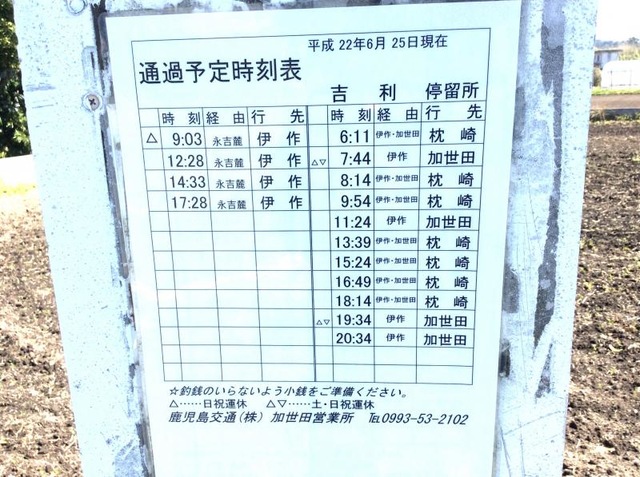 平成 22年6月 25日現在
通過予定時刻表
吉 利 停留所
時 刻 経 由 行 先 時 刻 経 由 行 先
△ 9:03 永吉麓 伊 作 6:11 伊作・加世田 枕 崎
12:28 永吉麓 伊 作 △▽ 7:44 伊作 加世田
14:33 永吉麓 伊 作 8:14 伊作・加世田 枕 崎
17:28 永吉麓 伊 作 9:54 伊作・加世田 枕 崎
11:24 伊作 加世田
13:39 伊作・加世田 枕 崎
15:24 伊作・加世田 枕 崎
16:49 伊作・加世田 枕 崎
18:14 伊作・加世田 枕 崎
△▽ 19:34 伊作 加世田
20:34 伊作 加世田
☆釣銭のいらないよう小銭をご準備ください。
△……日祝運休 △▽……土・日祝運休
鹿児島交通(株) 加世田営業所 ℡0993-53-2102